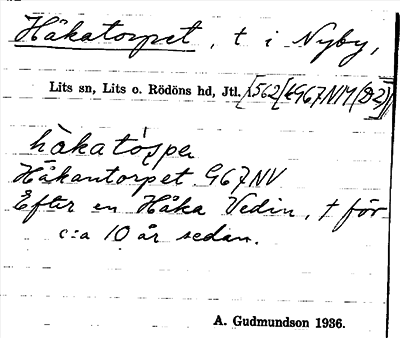 Håkatorpet, t i Nyby,
Lits sn, Lits o. Rödöns hd, Jtl.
håkatɔ̀rpeṇ
Håkantorpet G67NV
Efter en Håka Vedin, † för
c:a 10 år sedan.
A. Gudmundson 1936.